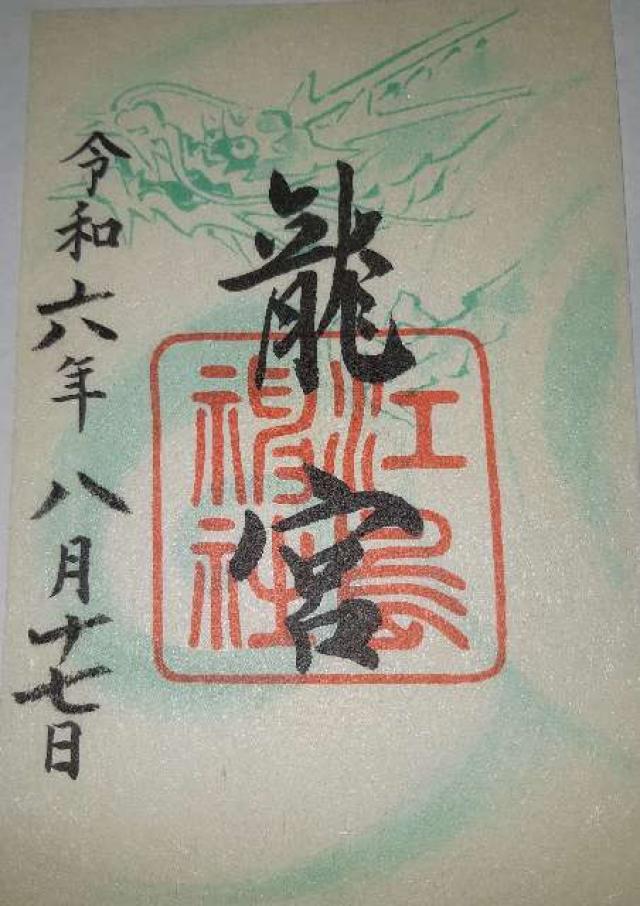 龍宮
江島神社
令和六年 八月十七日